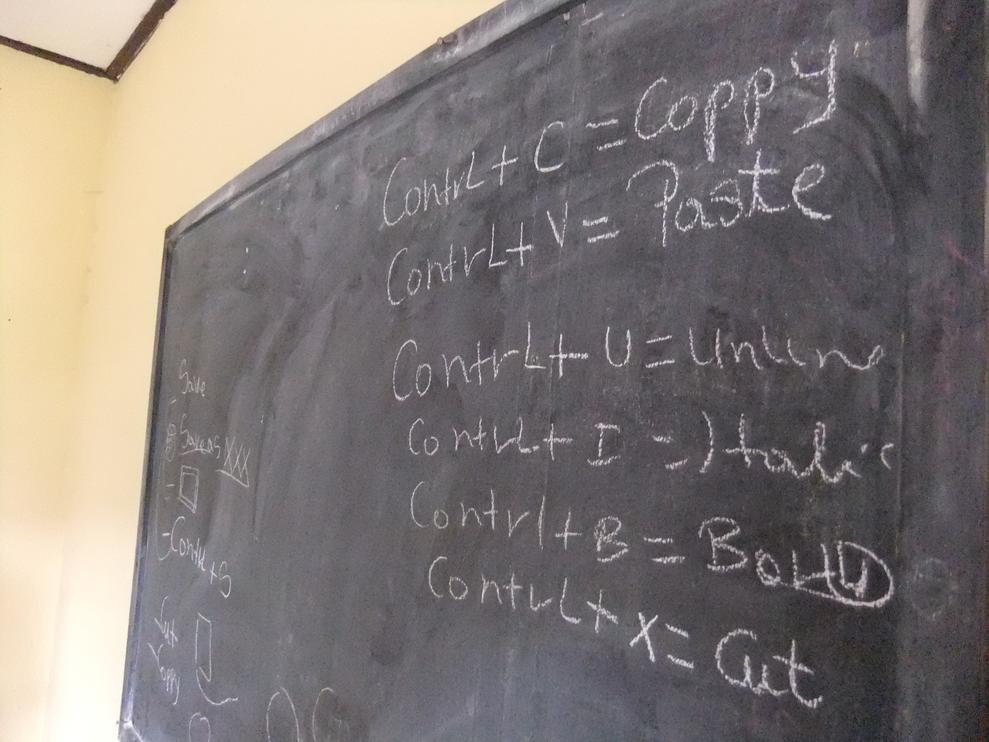 Contrl + C = Coppy
Contrl + V = Paste
Contrl + U = Unline
Contrl + I = Italic
Contrl + B = Bold
Contrl + X = Cut
Save
Save as XXX
- Contrl + S
Cut
Coppy